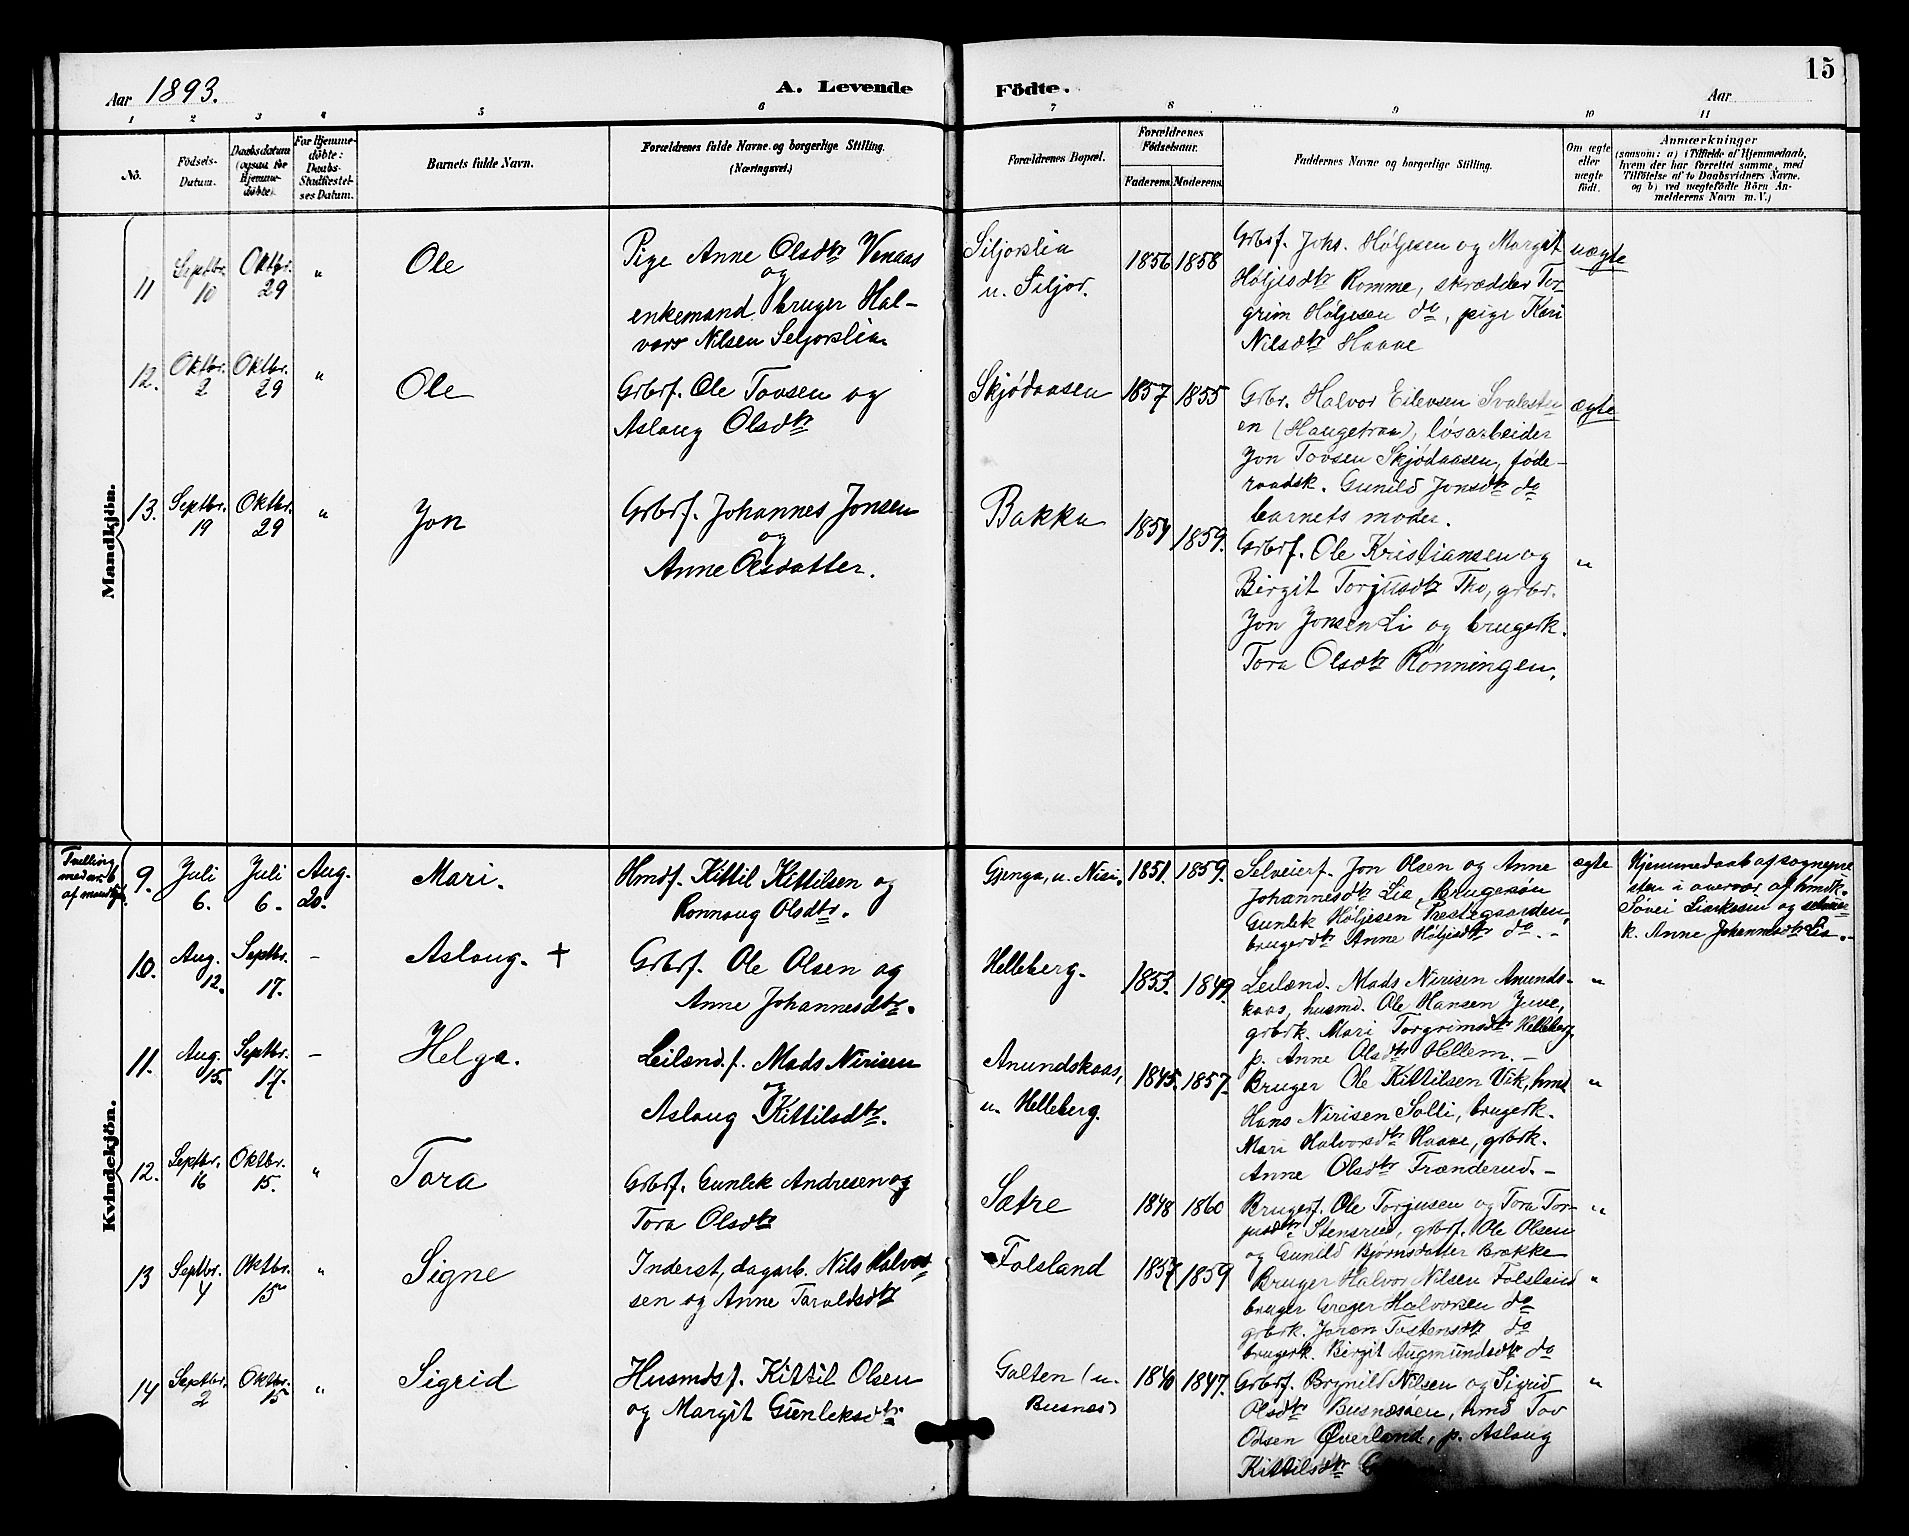 15
Aar 1893.
A. Levende Födte.
Aar
1 2 3 4 5 6 7 8 9 10 11
No.
Födsels-
Datum.
Daabsdatum
(ogsaa for
Hjemme-
döbte).
For Hjemme-
döbte:
Daabs-
Stadfæstel-
ses Datum.
Barnets fulde Navn.
Forældrenes fulde Navne og borgerlige Stilling.
(Næringsvei.)
Forældrenes Bopæl.
Forældrenes
Födselsaar.
Faderens. Moderens.
Faddernes Navne og borgerlige Stilling.
Om ægte
eller
uægte
födt.
Anmærkninger
(saasom: a) i Tilfælde af Hjemmedaab,
hvem der har forrettet samme, med
Tilföielse af to Daabsvidners Navne.
og b) ved uægtefödte Börn An-
melderens Navn m. V.)
Mandkjön.
11
Septbr.
10
Oktbr.
29
"
Ole
Pige Anne Olsdtr Venaas
og
enkemand bruger Hal-
vor Nilsen Seljorslia
Siljorslia
u. Siljor.
1856 1858
Grbrf. Johs. Høljesen og Margit
Høljesdtr Romme, skrædder Tor-
grim Høljesen do, pige Kari
Nilsdtr Haave
uægte
12.
Oktbr.
2
Oktbr.
29
"
Ole
Grbrf. Ole Tovsen og
Aslaug Olsdtr
Skjødaasen
1857 1855
Grbr. Halvor Eilevsen
en (Haugetraa), løsarbeider
Jon Tovsen Skjødaasen, føde-
raadsk. Gunild Jonsdtr do
barnets moder.
ægte
13.
Septbr.
19
Oktbr.
29
"
Jon
Grbrf. Johannes Jonsen
og
Anne Olsdatter.
Bakka
1854 1859.
Grbrf. Ole Kristiansen og
Birgit Torjusdtr Tho, grbr.
Jon Jonsen Li og brugerk.
Tora Olsdtr Rønningen.
"
Kvindekjön.
Tvilling
med nr. 6
af mandkj.
9.
Juli
6.
Juli
6.
Aug.
20.
Mari.
Hmdf. Kittil Kittilsen og
Ronnaug Olsdtr.
Gjenga, u. Nisi.
1851. 1859.
Selveierf. Jon Olsen og Anne
Johannesdtr Lia, Brugesøn
Gunlek Høljesen Prestegaarden,
brugerdtr Anne Høljesdtr do. -
ægte
Hjemmedaab af sognepre-
sten i overvær af hmdk.
Søvei Liarkasin og selveier-
k. Anne Johannesdtr Lia. -
10.
Aug.
12.
Septbr.
17.
-
Aslaug. +
Grbrf. Ole Olsen og
Anne Johannesdtr.
Helleberg.
1853. 1849.
Leilænd. Mads Nirisen Anunds-
kaas, husmd. Ole Hansen Juve,
grbrk. Mari Torgrimsdtr Helleberg,
p. Anne Olsdtr Hellem. -
"
11.
Aug.
15.
Septbr.
17.
-
Helga.
Leilænd.f. Mads Nirisen
og
Aslaug Kittilsdtr.
Anundskaas,
u. Helleberg.
1845. 1857.
Bruger Ole Kittilsen Vik, hmd
Hans Nirisen Solli, brugerk.
Mari Halvorsdtr Haave, grbrk.
Anne Olsdtr Frænderud. -
"
12.
Septbr.
16
Oktbr.
15.
"
Tora
Grbrf. Gunlek Andresen og
Tora Olsdtr
Sætre
1848 1860
Brugerf. Ole Torjusen og Tora Tor-
jusdtr Stensrud, grbrf. Ole Olsen
og Gunild Bjørnsdatter Brække
"
13
Septbr.
4
Oktbr.
15
"
Signe
Inderst, dagarb. Nils Halvor-
sen og Anne Taraldsdtr
Folsland
1857 1859
Bruger Halvor Nilsen Folsland
bruger Greger Halvorsen do
grbrk. Joran Tostensdtr do
brugerk. Birgit Augmundsdtr do
"
14
Septbr.
2
Oktbr.
15
"
Sigrid
Husmdsf. Kittil Olsen
og Margit Gunleksdtr
Galten (u.
Busnes)
1840 1847.
Grbrf. Brynild Nilsen og Sigrid
Olsdtr Busnesøen, hmd Tov
Odsen Øverland, p. Aslaug
Kittilsdtr
"